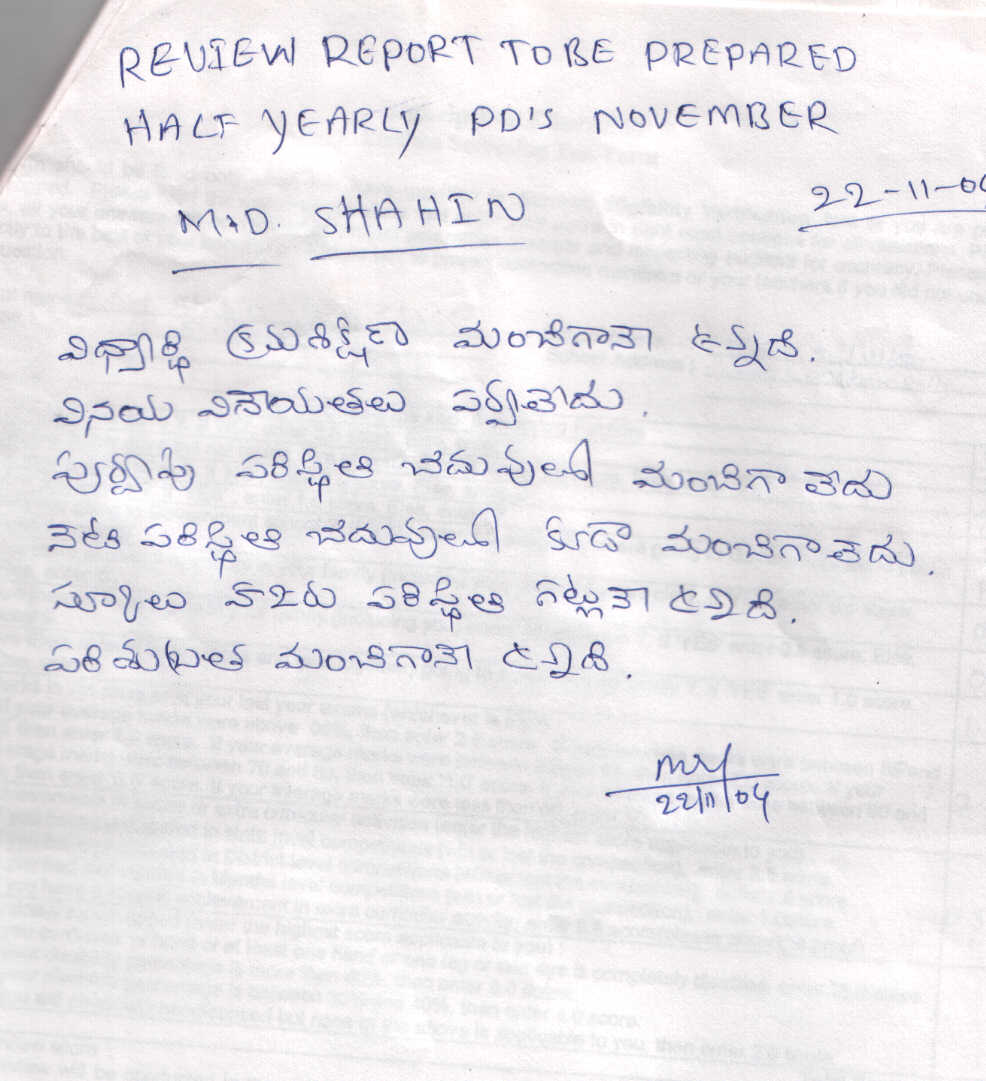 REVIEW REPORT TO BE PREPARED
HALF YEARLY PD'S NOVEMBER
M.D. SHAHIN
22-11-04
విధ్యార్థి క్రమశిక్షణ మంచిగానే ఉన్నది.
వినయ విదేయతలు పర్వాలేదు.
పూర్వపు పరిస్థితి చదువులో మంచిగా లేదు
నేటి పరిస్థితి చదువులో కూడా మంచిగా లేదు.
స్కూలు హాజరు పరిస్థితి గట్లునే ఉన్నది.
పరిశుభ్రత మంచిగానే ఉన్నది.
22/11/04